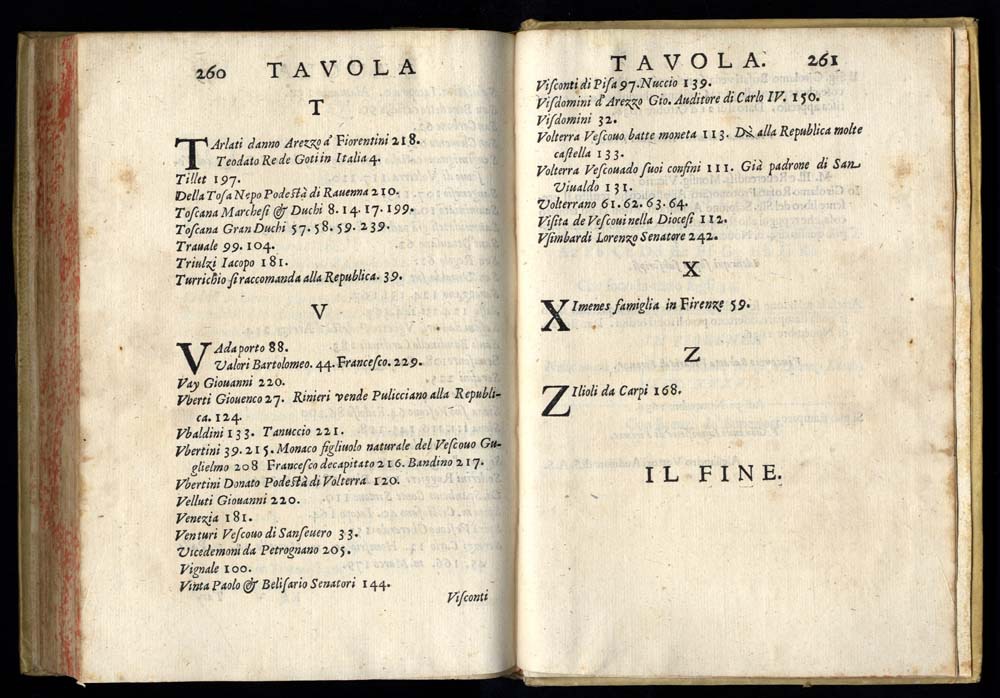 260 TAVOLA
T
TArlati danno Arezzo a' Fiorentini 218.
Teodato Re de Goti in Italia 4.
Tillet 197.
Della Tosa Nepo Podeſtà di Rauenna 210.
Toſcana Marcheſi & Duchi 8. 14. 17. 199.
Toſcana Gran Duchi 57. 58. 59. 239.
Trauale 99. 104.
Triulzi Iacopo 181.
Turrichio ſi raccomanda alla Republica. 39.
V
VAda porto 88.
Valori Bartolomeo. 44. Franceſco. 229.
Vay Giouanni 220.
Vberti Giouenco 27. Rinieri vende Pulicciano alla Republi-
ca. 124.
Vbaldini 133. Tanuccio 221.
Vbertini 39. 215. Monaco figliuolo naturale del Veſcouo Gu-
glielmo 208 Franceſco decapitato 216. Bandino 217.
Vbertini Donato Podeſtà di Volterra 120.
Velluti Giouanni 220.
Venezia 181.
Venturi Veſcouo di Sanſeuero 33.
Vicedemoni da Petrognano 205.
Vignale 100.
Vinta Paolo & Beliſario Senatori 144.
Viſconti
TAVOLA. 261
Viſconti di Piſa 97. Nuccio 139.
Viſdomini d'Arezzo Gio. Auditore di Carlo IV. 150.
Viſdomini 32.
Volterra Veſcouo batte moneta 113. Dà alla Republica molte
caſtella 133.
Volterra Veſcouado ſuoi confini 111. Già padrone di San
Viualdo 131.
Volterrano 61. 62. 63. 64.
Viſita de Veſcoui nella Dioceſi 112.
Vſimbardi Lorenzo Senatore 242.
X
XImenes famiglia in Firenze 59.
Z
ZIlioli da Carpi 168.
IL FINE.